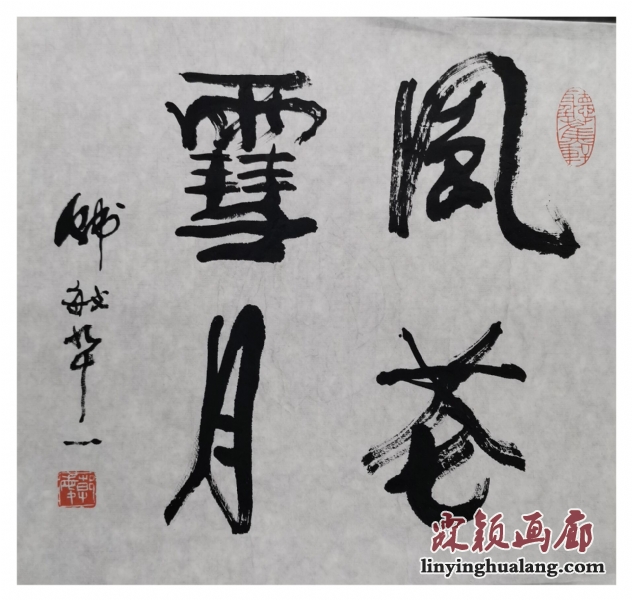 風花
雪月
韩敏
霖颖画廊
linyinghualang.com